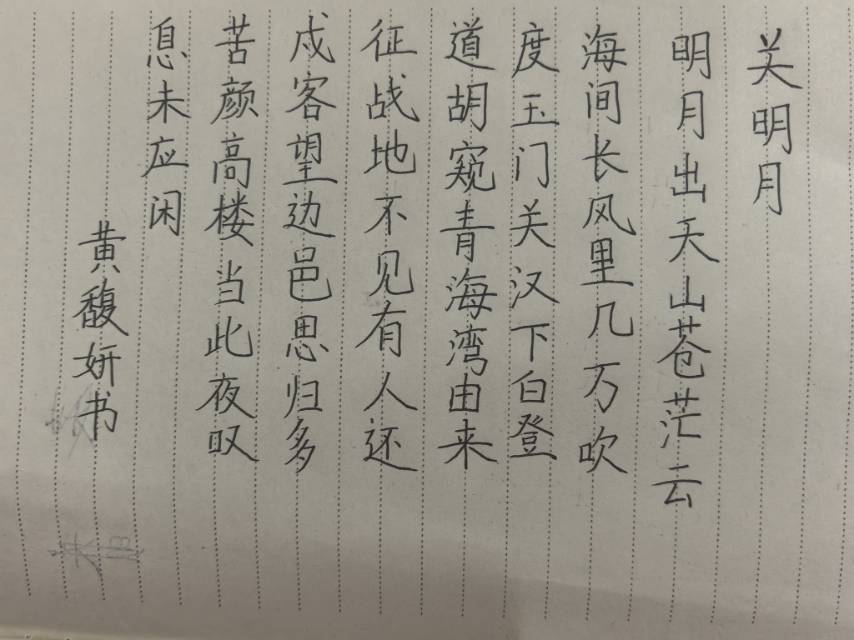 关明月
明月出天山苍茫云
海间长风里几万吹
度玉门关汉下白登
道胡窥青海湾由来
征战地不见有人还
戍客望边邑思归多
苦颜高楼当此夜叹
息未应闲
黄馥妍书